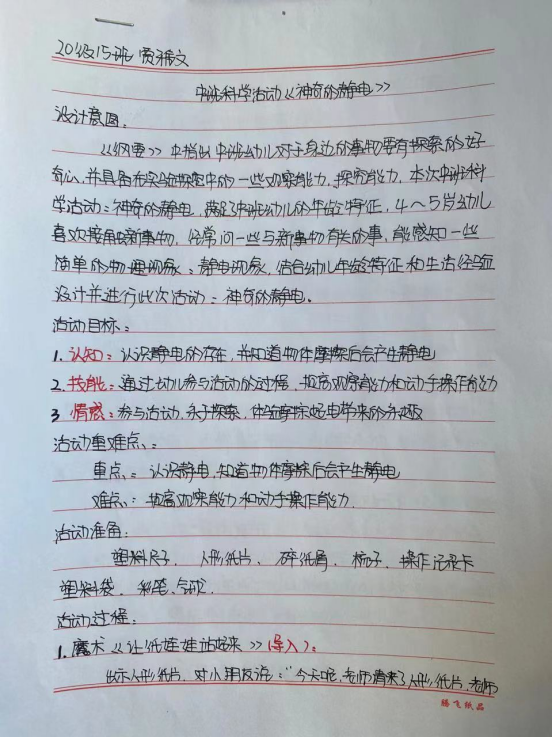 20级15班 贾稀文
中班科学活动《神奇的静电》
设计意图:
《纲要》中指出中班幼儿对于身边的事物要有探索的好
奇心,并且具备在实验探索中的一些观察能力,探究能力,本次中班科
学活动:神奇的静电,满足了中班幼儿的年龄特征,4～5岁幼儿
喜欢接触新事物,经常问一些与新事物有关的事,能感知一些
简单的物理现象:静电现象,结合幼儿年龄特征和生活经验
设计并进行此次活动:神奇的静电。
活动目标:
1.认知:认识静电的存在,并知道物体摩擦后会产生静电
2.技能:通过幼儿参与活动的过程,提高观察能力和动手操作能力
3 情感:参与活动,乐于探索,体验摩擦起电带来的乐趣
活动重难点:
重点:认识静电,知道物体摩擦后会产生静电
难点:提高观察能力和动手操作能力.
活动准备:
塑料尺子、人形纸片、碎纸屑、梳子、操作记录卡
塑料袋、彩笔、气球.
活动过程:
1.魔术《让纸娃娃站起来》(导入):
出示人形纸片,对小朋友说:“今天呢,老师请来了人形纸片,老师
腾飞纸品